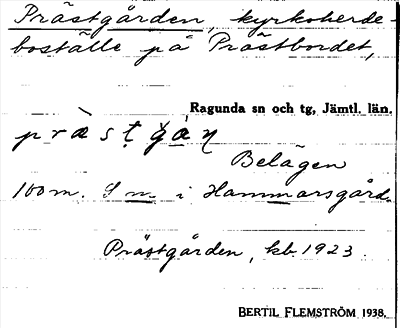 Prästgården, kyrkoherde-
boställe på Prästbordet,
Ragunda sn och tg, Jämtl. län.
Belägen
100 m. S m i Hammarsgård.
Prästgården, kb. 1923.
BERTIL FLEMSTRÖM 1938.